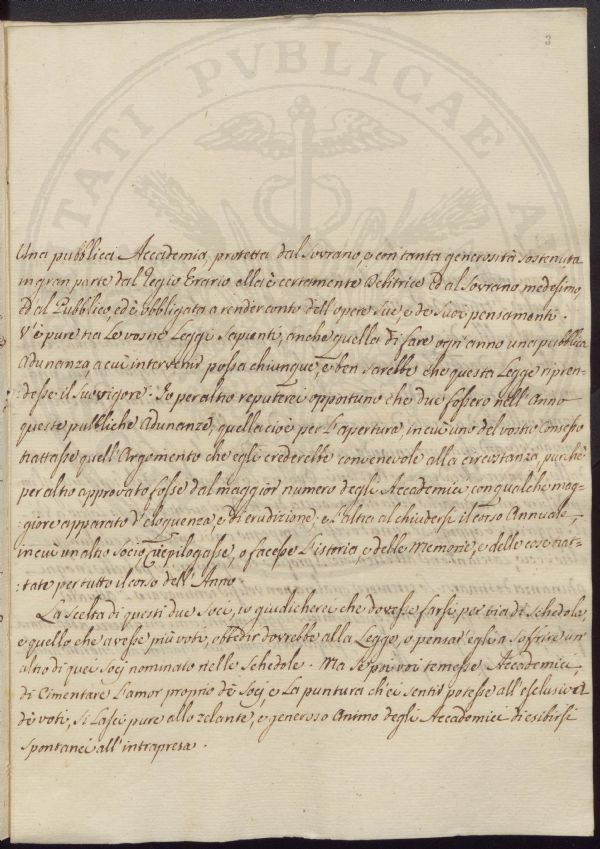 3
TATI PVBLICAE
Una pubblica Accademia, protetta dal Sovrano, e con tanta generosità sostenuta
in gran parte dal Regio Erario ella è certamente debitrice ed al Sovrano medesimo
ed al Pubblico, ed è obbligata a render conto dell'opere sue, e de' suoi pensamenti.
V'è pure tra le vostre Leggi Sapienti, anche quella di fare ogn'anno una pubblica
Adunanza, a cui intervenir possa chiunque, e ben sarebbe che questa Legge ripren-
desse il suo vigore. Io per altro reputerei opportuno che due fossero nell'Anno
queste pubbliche Adunanze; quella cioè per l'apertura, in cui uno del vostro Consesso
trattasse quell'Argomento che egli crederebbe convenevole alla circostanza, purchè
per altro approvato fosse dal maggior numero degli Accademici con qualche mag-
giore apparato d'eloquenza e di erudizione; e l'altra al chiudersi il corso Annuale,
in cui un altro Socio riepilogasse, o facesse l'istoria, e delle memorie, e delle cose trat-
:tate per tutto il corso dell'Anno.
La scelta di questi due Socj, io giudicherei che dovesse farsi per via di Schedole,
e quello che avesse più voti, obbedir dovrebbe alla Legge, o pensar egli a sostituire un
altro di quei Socj nominato nelle schedole. Ma se poi voi temeste Accademici,
di cimentare l'amor proprio de' Socj, e la puntura ch'ei sentir potesse all'esclusiva
de' voti, si lasci pure allo zelante, e generoso Animo degli Accademici di esibirsi
spontanei all'intrapresa.